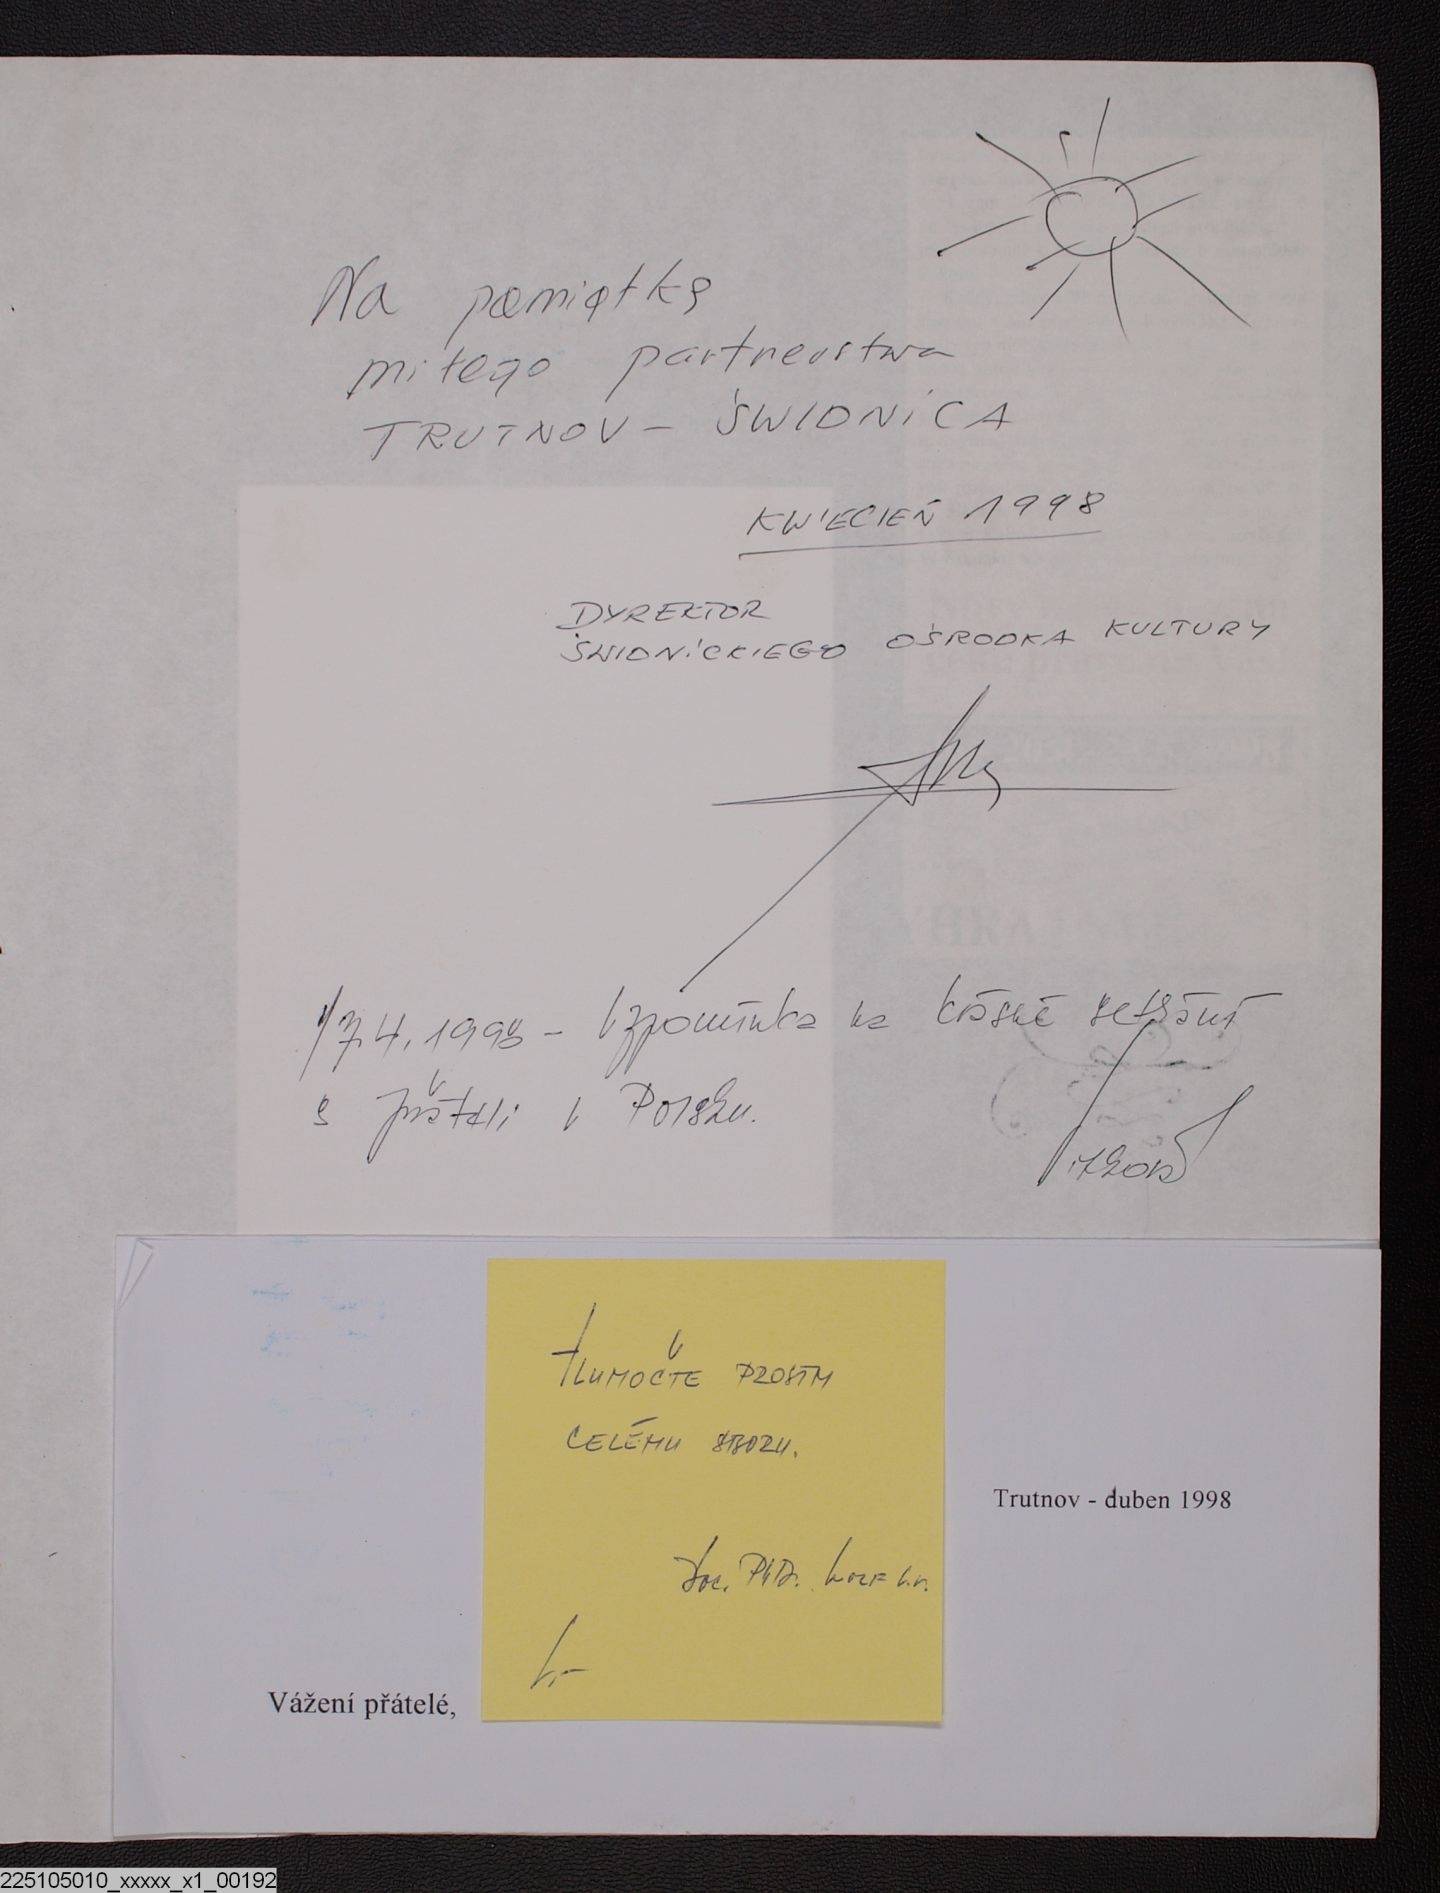 Na pamiątkę
miłego partnerstwa
TRUTNOV - ŚWIDNICA
KWIECIEŃ 1998
DYREKTOR
ŚWIDNICKIEGO OŚRODKA KULTURY
17.4.1998 - Vzpomínka na krásné setkání
s přáteli v Polsku.
TLUMOČTE PROSÍM
CELÉMU SBORU.
Doc. PhDr. h.r.
Trutnov - duben 1998
Vážení přátelé,
225105010_xxxxx_x1_00192